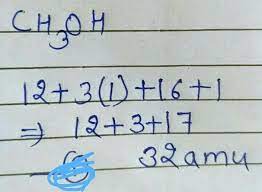 CH₃OH
12+3(1)+16+1
⇒ 12+3+17
32amu